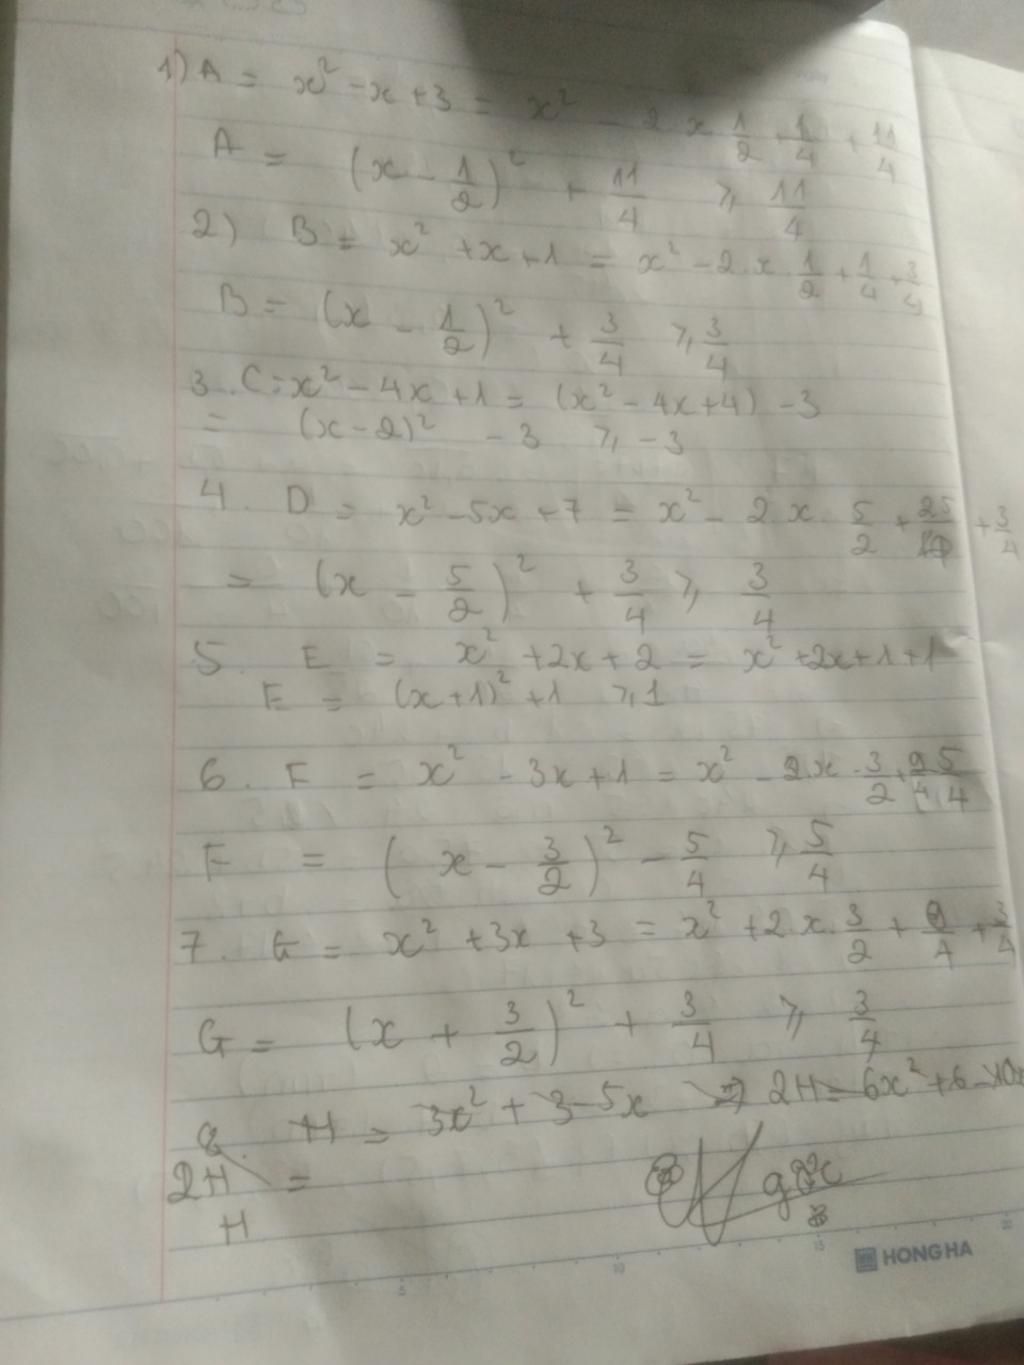 1) A = x² - x + 3 = x² - 2 x 1/2 + 1/4 + 11/4
A = (x - 1/2)² + 11/4 ≥ 11/4
2) B = x² + x + 1 = x² - 2. x 1/2 + 1/4 + 3/4
B = (x - 1/2)² + 3/4 ≥ 3/4
3. C = x² - 4x + 1 = (x² - 4x + 4) - 3
= (x - 2)² - 3 ≥ -3
4. D = x² - 5x + 7 = x² - 2. x. 5/2 + 25/ + 3/4
= (x - 5/2)² + 3/4 ≥ 3/4
5. E = x² + 2x + 2 = x² + 2x + 1 + 1
E = (x + 1)² + 1 ≥ 1
6. F = x² - 3x + 1 = x² - 2.x . 3/2 + 9/4 5/4
F = (x - 3/2)² - 5/4 ≥ 5/4
7. G = x² + 3x + 3 = x² + 2.x. 3/2 + 9/4 + 3/4
G = (x + 3/2)² + 3/4 ≥ 3/4
8. H = 3x² + 3 - 5x ⇒ 2H = 6x² + 6 - 10x
2H =
H
5 10 15 20
HONG HA